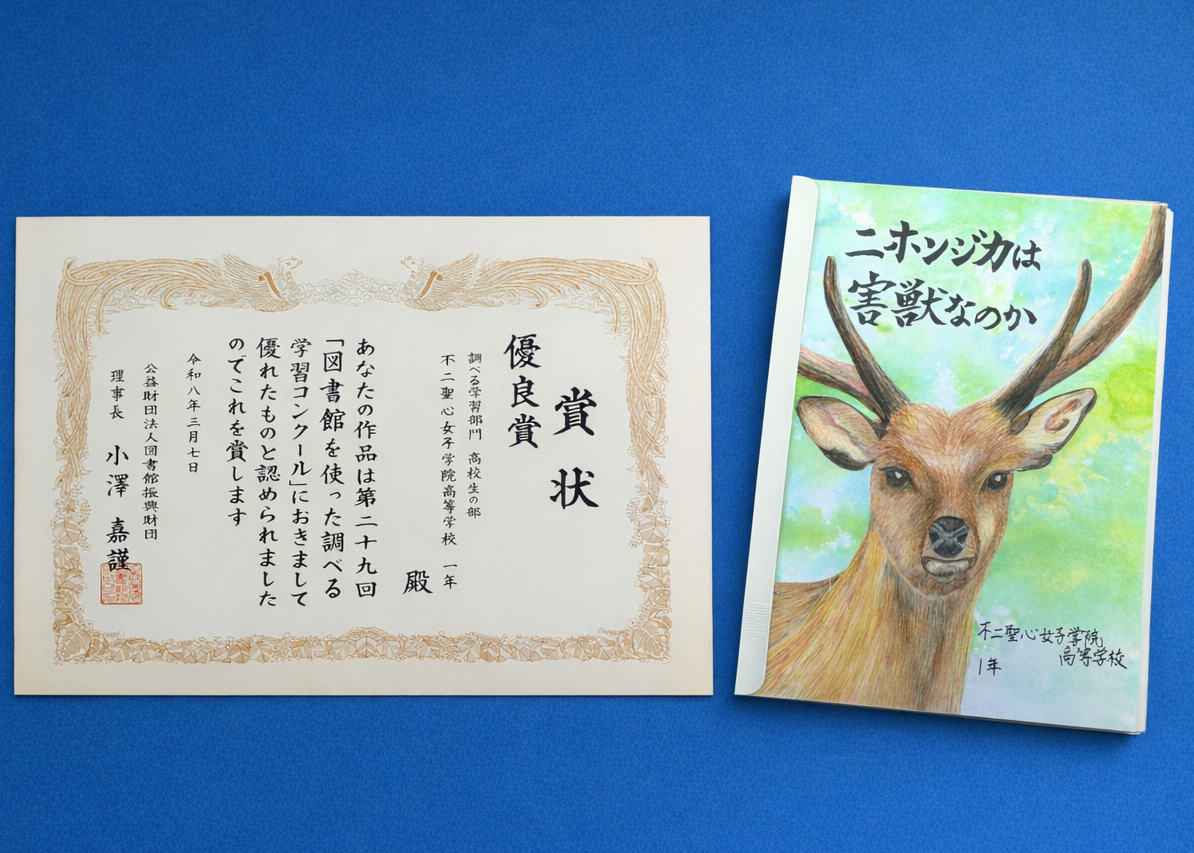 賞状
優良賞
調べる学習部門 高校生の部
不二聖心女子学院高等学校 一年
殿
あなたの作品は第二十九回
「図書館を使った調べる
学習コンクール」におきまして
優れたものと認められました
のでこれを賞します
令和八年三月七日
公益財団法人図書館振興財団
理事長 小澤 嘉謹
ニホンジカは
害獣なのか
不二聖心女子学院
高等学校
1年